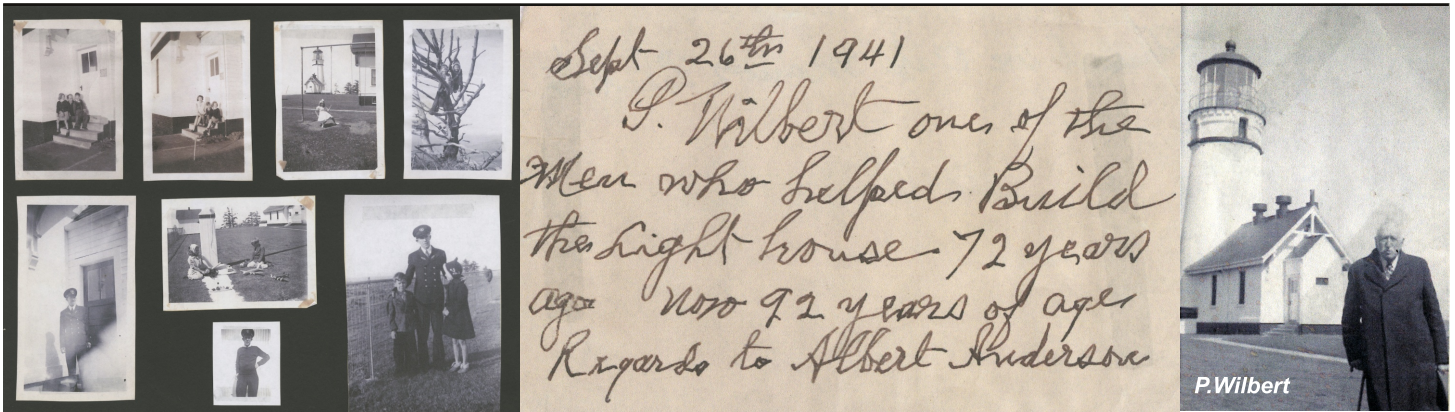 Sept 26th 1941
P. Wilbert one of the
Men who helped Build
the Light house 72 years
ago now 92 years of age
Regards to Albert Anderson
P.Wilbert